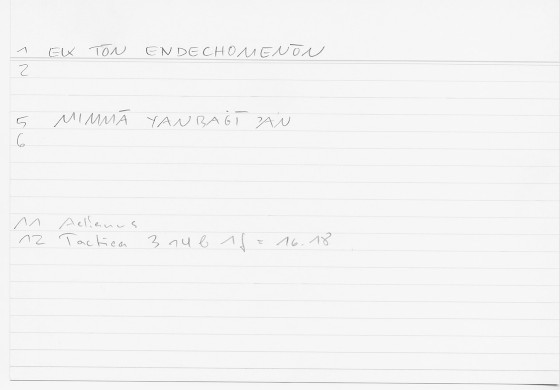 1 EK TŌN ENDECHOMENŌN
2
5 MIMMĀ YANBAĠĪ ʾAN
6
11 Aelianus
12 Tactica 3 14b 1f = 16.18